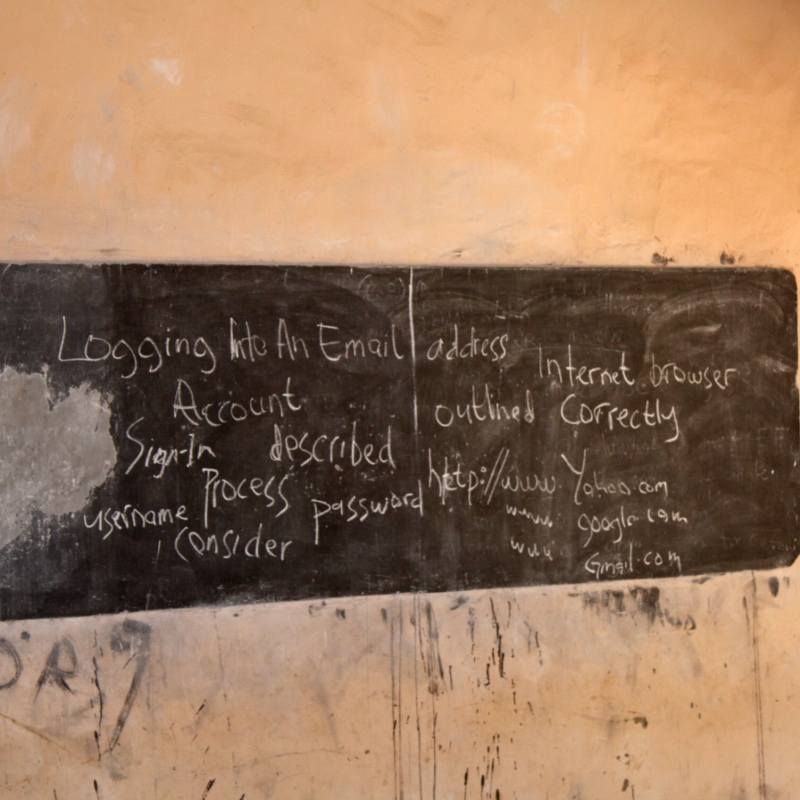 Logging Into An Email
Account
Sign-In described
Process
username password
consider
address
Internet browser
outlined Correctly
http://www. Yahoo.com
www. google.com
www. Gmail.com
OR